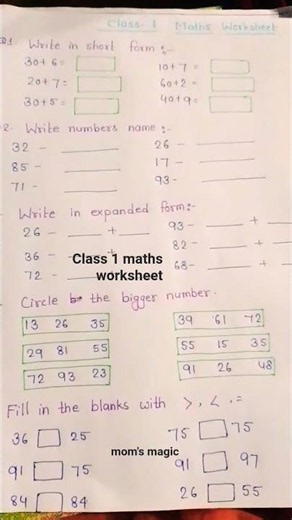 Class-1 Maths Worksheet
Q1. Write in short form :-
30+6= 10+7=
20+7= 60+2=
30+5= 40+9=
2. Write numbers name :-
32 - 26 -
85 - 17 -
71 - 93-
Write in expanded form:-
26 - + 93- +
36 - + 82 - +
72 - 68- +
Class 1 maths
worksheet
Circle the bigger number.
13 26 35 39 61 72
29 81 55 55 15 35
72 93 23 91 26 48
Fill in the blanks with >, <, =
36 25 75 75
mom's magic
91 75 91 97
84 84 26 55